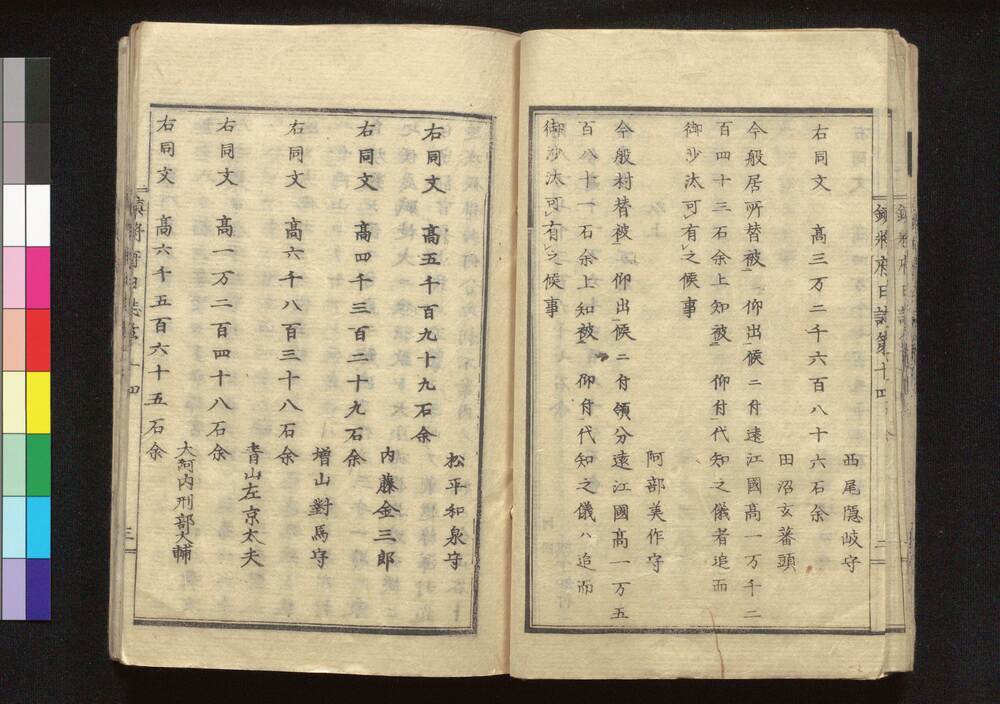 西尾隠岐守
右同文　高三万二千六百八十六石余
田沼玄蕃頭
今般居所替被　仰出候ニ付遠江國高一万千二
百四十三石余上知被　仰付代知之儀者追而
御沙汰可有之候事
阿部美作守
今般村替被　仰出候ニ付領分遠江國高一万五
百八十一石余上知被　仰付代知之儀ハ追而
御沙汰可有之候事
鎮將府日誌第十四
二
松平和泉守
右同文　高五千百九十九石余
内藤金三郎
右同文　高四千三百二十九石余
増山對馬守
右同文　高六千八百三十八石余
青山左京大夫
右同文　高一万二百四十八石余
大河内刑部大輔
右同文　高六千五百六十五石余
三